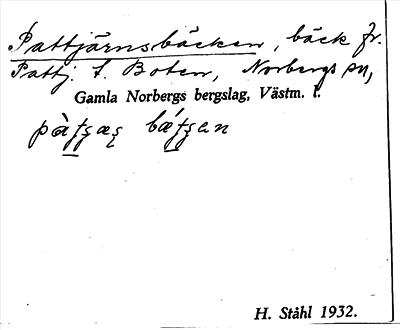 Pattjärnsbäcken, bäck fr.
Pattj. t. Boten, Norbergs sn,
Gamla Norbergs bergslag, Västm. l.
H. Ståhl 1932.